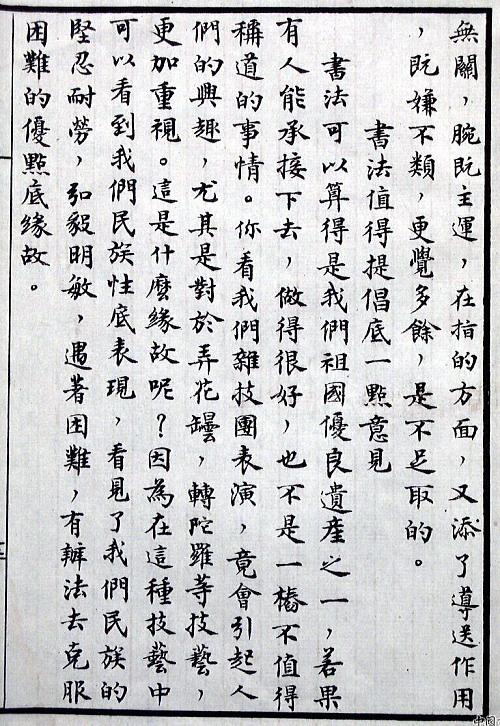 無關，腕旣主運，在指的方面，又添了導送作用
，旣嫌不類，更覺多餘，是不足取的。
書法值得提倡底一點意見
書法可以算得是我們祖國優良遺產之一，若果
有人能承接下去，做得很好，也不是一樁不值得
稱道的事情。你看我們雜技團表演，竟會引起人
們的興趣，尤其是對於弄花罎，轉陀羅等技藝，
更加重視。這是什麼緣故呢？因為在這種技藝中
可以看到我們民族性底表現，看見了我們民族的
堅忍耐勞，弘毅明敏，遇著困難，有辦法去克服
困難的優點底緣故。